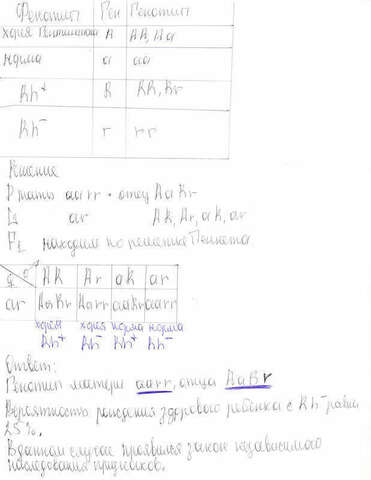 Фенотип Ген Генотип
хорея Гентингтона А АА, Аа
норма а аа
Rh⁺ R RR, Rr
Rh⁻ r rr
Решение
Р мать aarr × отец AaRr
G ar AR, Ar, aR, ar
F₁ находим по решетке Пеннета
♀ ♂ AR Ar aR ar
ar AaRr Aarr aaRr aarr
хорея хорея норма норма
Rh⁺ Rh⁻ Rh⁺ Rh⁻
Ответ:
Генотип матери aarr, отца AaRr
Вероятность рождения здорового ребенка с Rh⁻ равна
25%.
В данном случае проявился закон независимого
наследования признаков.